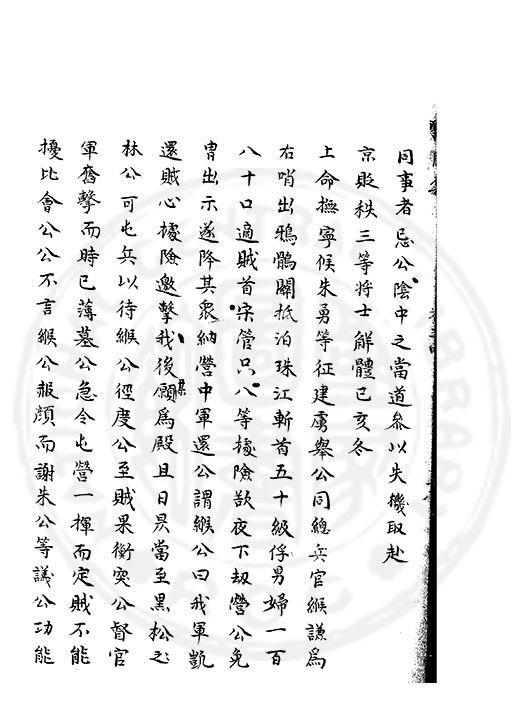 同事者忌公陰中之當道叅以失機取赴
京貶秩三等將士解體已亥冬
上命撫寧候朱勇等征建虜舉公同總兵官緱謙爲
右哨出鴉鶻關抵泊珠江斬首五十級俘男婦一百
八十口適賊首宋管只八等據險欲夜下刼營公免
冑出示遂降其衆納營中軍還公謂緱公曰我軍凱
還賊心據險邀擊我後願某爲殿且日昃當至黑松
林公可屯兵以待緱公徑度公至賊果衝突公督官
軍奮擊而時已薄墓公急令屯營一揮而定賊不能
擾比會公公不言緱公赧顔而謝朱公等議公功能